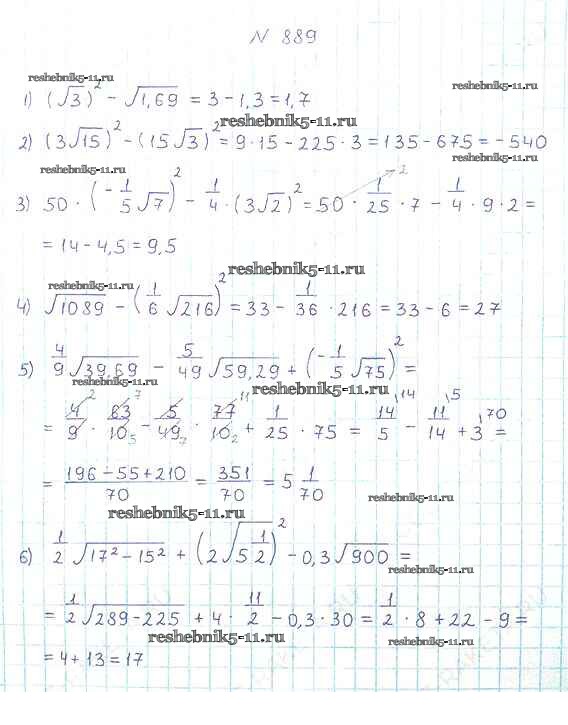 N 889
reshebnik5-11.ru reshebnik5-11.ru
1) (√3)² - √1,69 = 3 - 1,3 = 1,7
reshebnik5-11.ru
2) (3√15)² - (15√3)² = 9·15 - 225·3 = 135 - 675 = -540
reshebnik5-11.ru reshebnik5-11.ru
3) 50·(-1/5√7)² - 1/4·(3√2)² = 50·1/25·7 - 1/4·9·2 =
= 14 - 4,5 = 9,5
reshebnik5-11.ru
reshebnik5-11.ru
4) √1089 - (1/6√216)² = 33 - 1/36·216 = 33 - 6 = 27
5) 4/9√39,69 - 5/49√59,29 + (-1/5√75)² =
reshebnik5-11.ru reshebnik5-11.ru
= 4/9·63/10 - 5/49·77/10 + 1/25·75 = 14/5 - 11/14 + 3 =
= 196-55+210/70 = 351/70 = 5 1/70
reshebnik5-11.ru
reshebnik5-11.ru
6) 1/2√17²-15² + (2√5 1/2)² - 0,3√900 =
reshebnik5-11.ru
= 1/2√289-225 + 4·11/2 - 0,3·30 = 1/2·8 + 22 - 9 =
reshebnik5-11.ru reshebnik5-11.ru
= 4 + 13 = 17